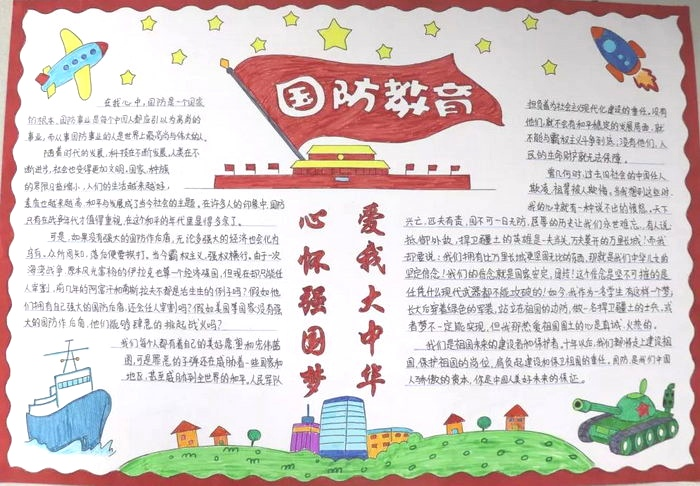 国防教育
在我心中,国防是一个国家
的根本,国防事业是每个中国人都应引以为崇高的
事业,而从事国防事业的人是世界上最高尚与伟大的人。
随着时代的发展,科技在不断发展,人类在不
断进步,社会也变得更加文明,国家、种族
的界限日益缩小,人们的生活越来越好,
素质也越来越高,和平与发展成了当今社会的主题。在许多人的印象中,国防
只有在战争年代才值得重视,在这个和平的年代里显得多余了。
可是,如果没有强大的国防作后盾,无论多强大的经济也会化为
乌有。众所周知,落后便要挨打,当今霸权主义,强权横行。由于一次
海湾战争,原本风光富裕的伊拉克也算一个经济强国,但现在却只能任
人宰割,前几年的阿富汗和南斯拉夫不都是活生生的例子吗?假如他
们拥有自己强大的国防作后盾,还会任人宰割吗?假如美国等国家没有强
大的国防作后盾,他们能够肆意的挑起战火吗?
我们每个人都有着自己的美好愿望和宏伟蓝
图,可是罪恶的子弹还在威胁着一些国家和
地区,甚至威胁到全世界的和平。人民军队
心怀强国梦
爱我大中华
担负着为社会主义现代化建设的重任。没有
他们,就不会有和平稳定的发展局面,就
不能与霸权主义斗争到底;没有他们,人
民的生命财产就无法保障。
曾几何时,过去旧社会的中国任人
欺凌,祖辈被人欺侮,每当想到这些时,
我的心中就有一种说不出的愤怒。天下
兴亡,匹夫有责,国不可一日无防,屈辱的历史让我们永世难忘。有人说,
抵御外敌,捍卫疆土的英雄是一夫当关,万夫莫开的万里长城!而我
却要说:我们拥有比万里长城更坚固无比的东西,那就是我们中华儿女的
坚定信念!我们的信念就是国家安定,团结!这个信念是坚不可摧的是
任凭什么现代武器都不能攻破的!如今,我作为一名学生,有这样一个梦:
长大后穿着绿色的军装,站立在祖国的边防,做一名捍卫疆土的士兵,或
者梦不一定能实现,但我那热爱祖国国土的心是真诚、火热的。
我们是祖国未来的建设者和保护者,十年以后,我们都将走上建设祖
国,保护祖国的岗位,肩负起建设和保卫祖国的重任。国防,是我们中国
人骄傲的资本,你是中国美好未来的保证。